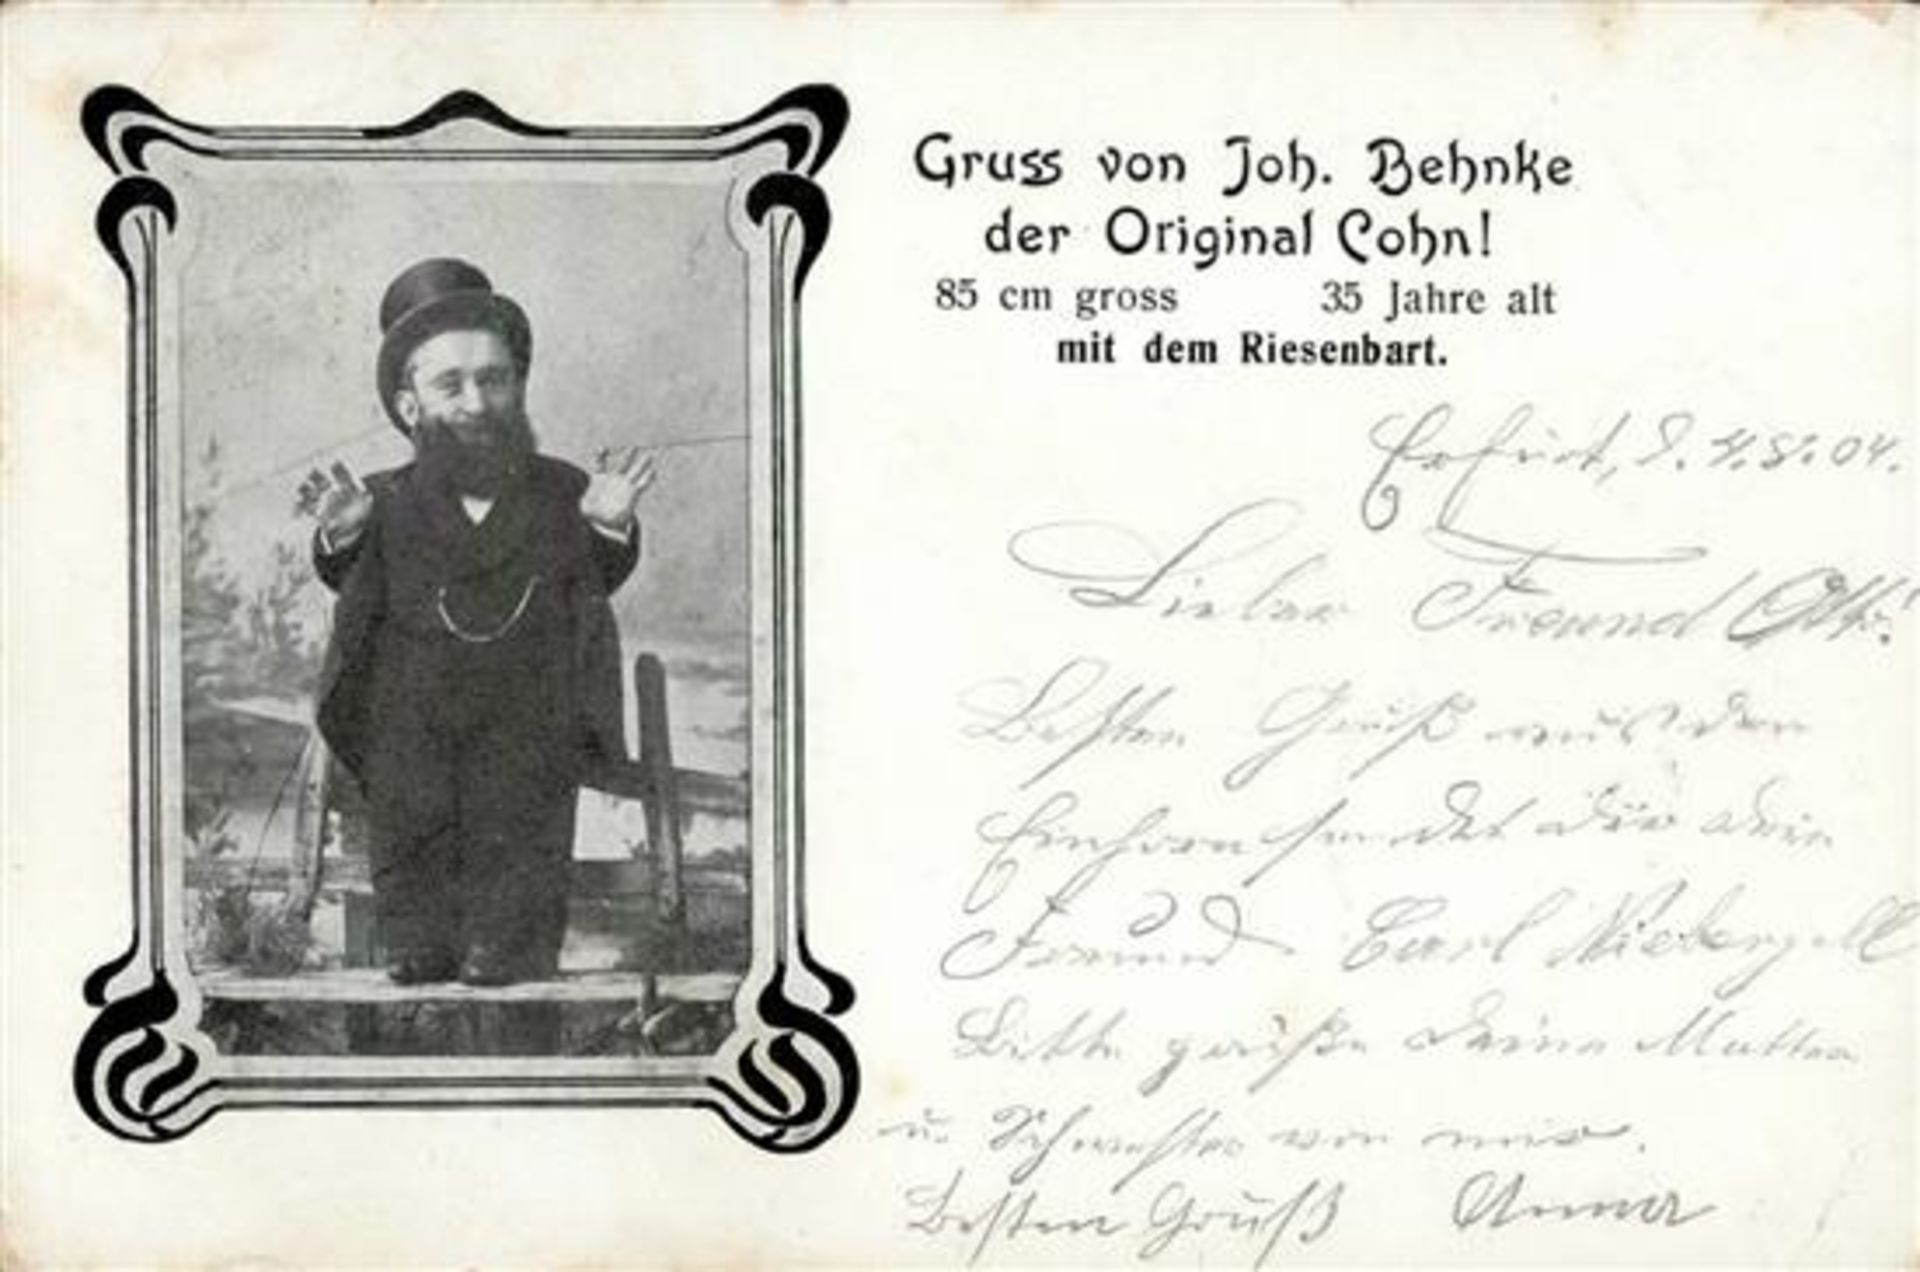 Gruss von Joh. Behnke
der Original Cohn!
85 cm gross 35 Jahre alt
mit dem Riesenbart.
Erfurt, 04.
Lieber Freund Otto!
Besten Gruß aus dem
Einhorn sendet dir dein
Freund Carl Niebergall
Bitte grüße deine Mutter
u. Schwester von mir.
Besten Gruß Anna